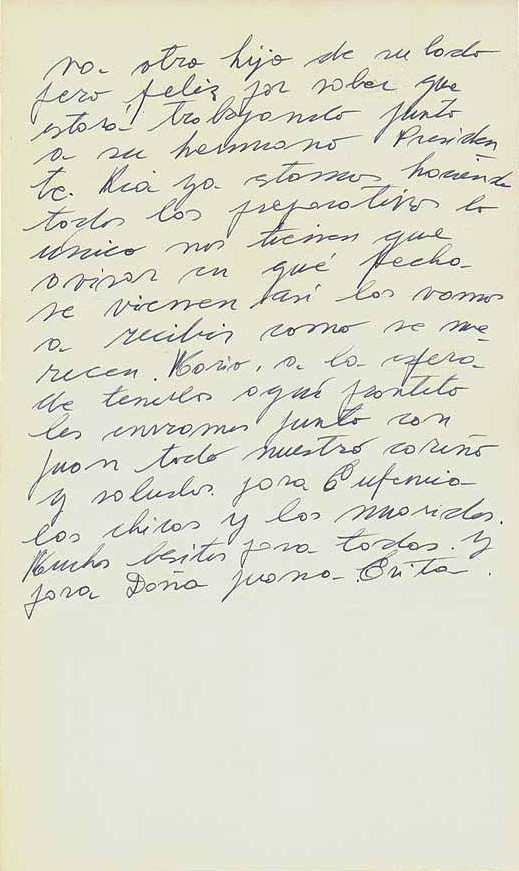 va otro hijo de su lado
pero feliz por saber que
estará trabajando junto
a su hermano Presiden
te. Acá ya estamos haciendo
todos los preparativos lo
único nos tienen que
avisar en qué fecha
se vienen así los vamos
a recibir como se me
recen. Mario, a la espera
de tenerlos aquí prontito
les enviamos junto con
Juan todo nuestro cariño
y saludos para Eufemia
los chicos y los maridos.
Muchos besitos para todos. y
para Doña Juana.